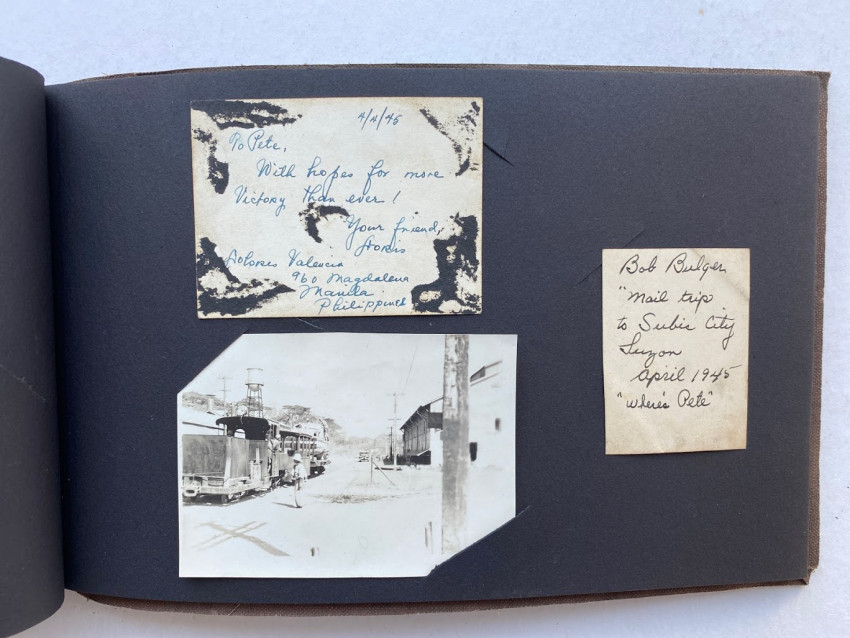 4/4/45
To Pete,
With hopes for more
Victory than ever!
Your friend,
Doris
Dolores Valencia
960 Magdalena
Manila
Philippines
Bob Bulger
"Mail trip
to Subic City
Luzon
April 1945
"Where's Pete"